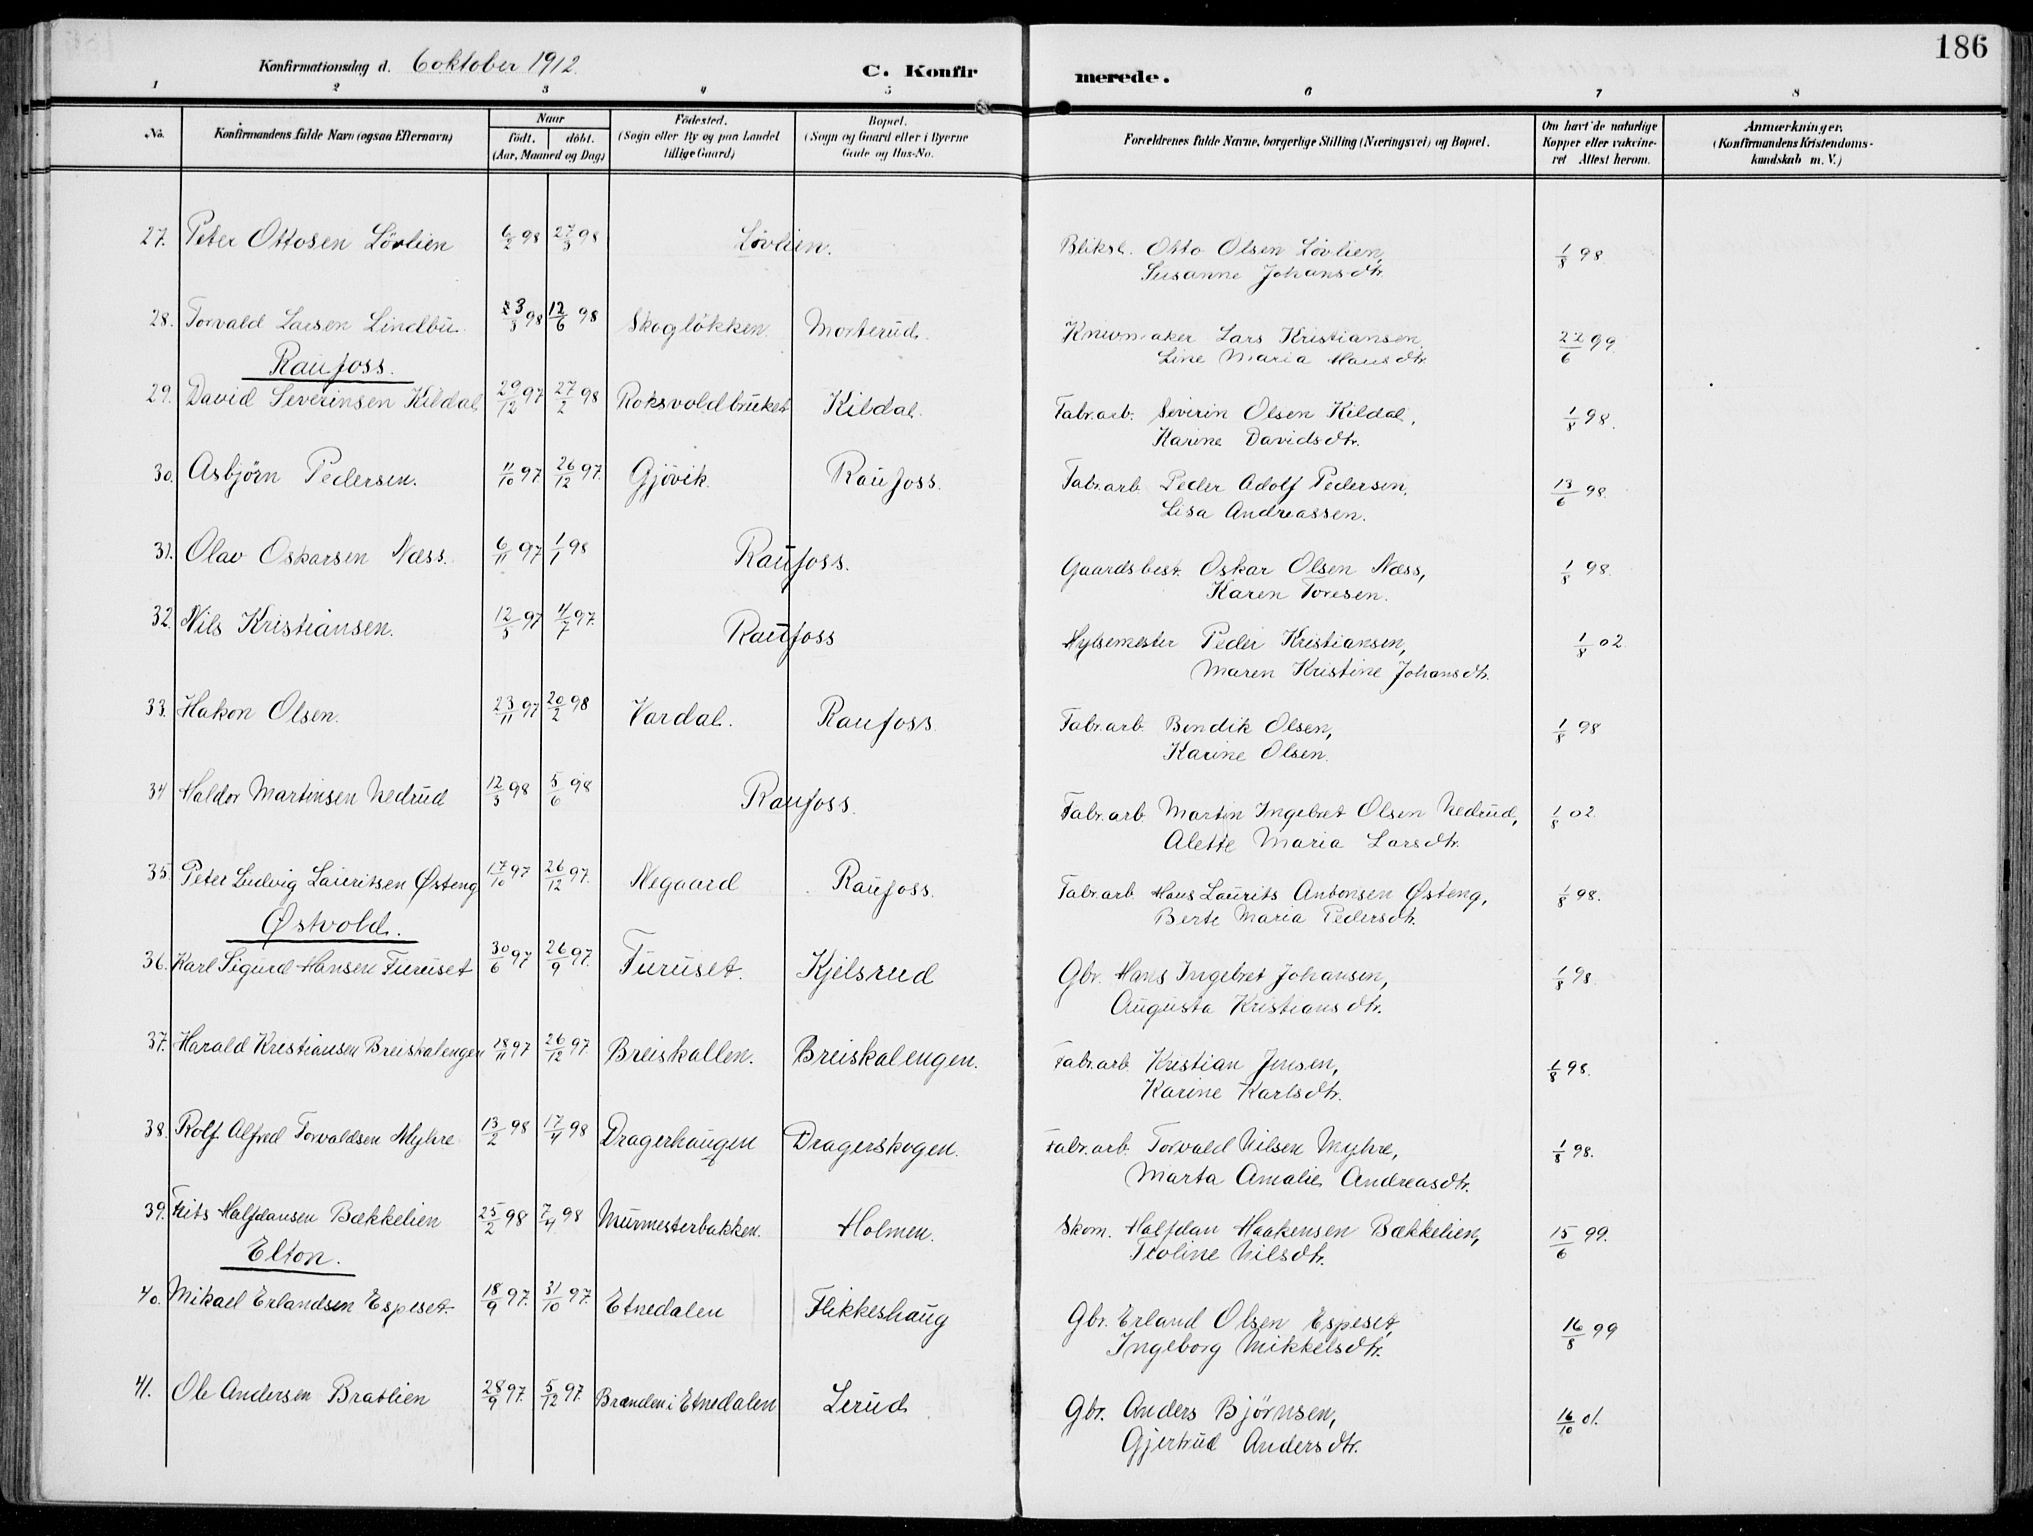 186
Konfirmationsdag d. 6 oktober 1912.
C. Konfirmerede.
1 2 3 4 5 6 7 8
No. Konfirmandens fulde Navn (ogsaa Efternavn) Naar født. døbt. (Aar, Maaned og Dag) Fødested. (Sogn eller By og paa Landet tillige Gaard) Bopæl. (Sogn og Gaard eller i Byerne Gade og Hus-No. Forældrenes fulde Navne, borgerlige Stilling (Næringsvei) og Bopæl. Om havt de naturlige Kopper eller vakcineret Attest herom. Anmærkninger. (Konfirmandens Kristendomskundskab m. V.)
27. Peter Ottosen Lövlien 6/2 98 27/3 98 Lövlien. Bliksl. Otto Olsen Lövlien, 1/8 98
Susanne Johansdtr.
28. Torvald Larsen Lindbu 3/3 98 12/6 98 Skogløkken. Morterud. Knivmaker Lars Kristiansen, 22/6 99
Line Maria Hansdtr.
Raufoss.
29. David Severinsen Kildal 29/12 97 27/2 98 Roksvoldbruket Kildal. Fabr.arb. Severin Olsen Kildal, 1/8 98.
Karine Davidsdtr.
30. Asbjörn Pedersen. 11/10 97 26/12 97. Gjövik Raufoss. Fabr.arb. Peder Adolf Pedersen, 13/6 98.
Lisa Andreassen.
31. Olav Oskarsen Næss. 6/11 97 1/1 98 Raufoss. Gaardsbest. Oskar Olsen Næss, 1/8 98.
Karen Toresen.
32. Nils Kristiansen. 12/5 97 4/7 97. Raufoss Hylsemester Peder Kristiansen, 1/8 02.
Maren Kristine Johansdtr.
33. Hakon Olsen. 23/11 97 20/2 98 Vardal. Raufoss. Fabr.arb. Bendik Olsen, 1/8 98
Karine Olsen.
34 Haldor Martinsen Nedrud 12/3 98 5/6 98 Raufoss. Fabr.arb. Martin Ingebret Olsen Nedrud, 1/8 02
Alette Maria Larsdtr.
35. Peter Ludvig Lauritsen Østeng 17/10 97 26/12 97. Negaard Raufoss. Fabr.arb. Hans Laurits Antonsen Østeng, 1/8 98.
Berte Maria Pedersdtr.
Østvold.
36. Karl Sigurd Hansen Furuset 30/6 97 26/9 97. Furuset. Kjelsrud Gbr. Hans Ingebret Johansen, 1/8 98.
Augusta Kristiansdtr.
37. Harald Kristiansen Breiskalengen 18/11 97 26/12 97. Breiskallen. Breiskalengen. Fabr.arb. Kristian Jensen, 1/8 98.
Karine Karlsdtr.
38. Rolf Alfred Torvaldsen Myhre 13/2 98 17/4 98 Dragerhaugen Dragerskogen. Fabr.arb. Torvald Nilsen Myhre, 1/8 98.
Marta Amalie Andreasdtr.
39. Frits Halfdansen Bækkelien 25/2 98 7/4 98 Murmesterbakken. Holmen. Skom. Halfdan Haakensen Bækkelien, 15/6 99.
Teoline Nilsdtr.
Elton.
40. Mikael Erlandsen Espeset 18/9 97. 31/10 97. Etnedalen Flikkeshaug Gbr. Erland Olsen Espeset, 16/8 99
Ingeborg Mikkelsdtr.
41. Ole Andersen Bratlien 28/9 97. 5/12 97. Brænden i Etnedalen Lerud Gbr. Anders Björnsen, 16/10 01.
Gjertrud Andersdtr.